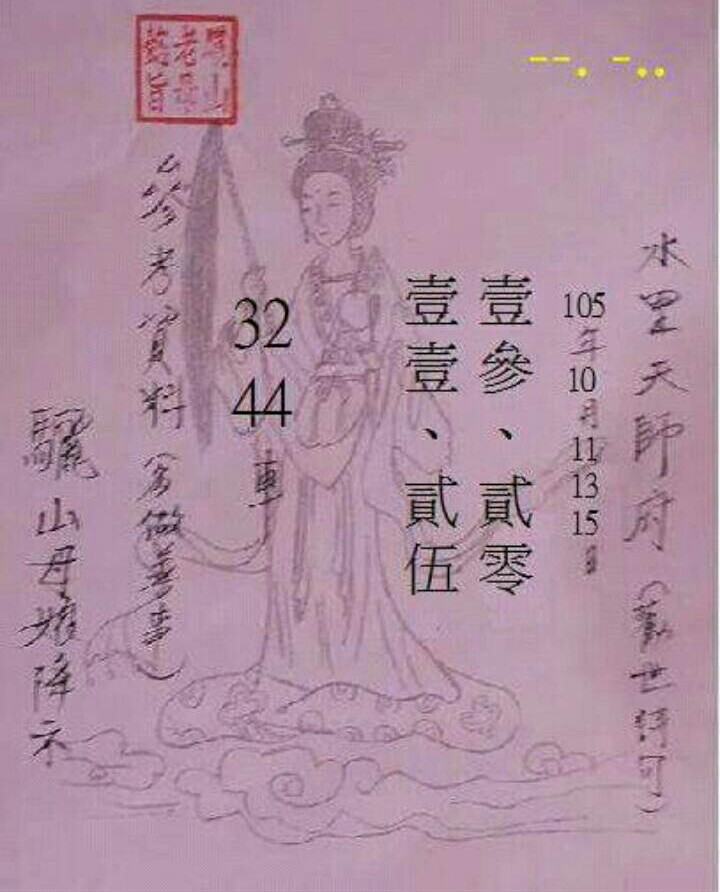 水里天師府(觀世許可)
105年10月11 13 15日
壹參、貳零
壹壹、貳伍
32
44
車
參考資料(多做善事)
驪山母娘降示
--. -..